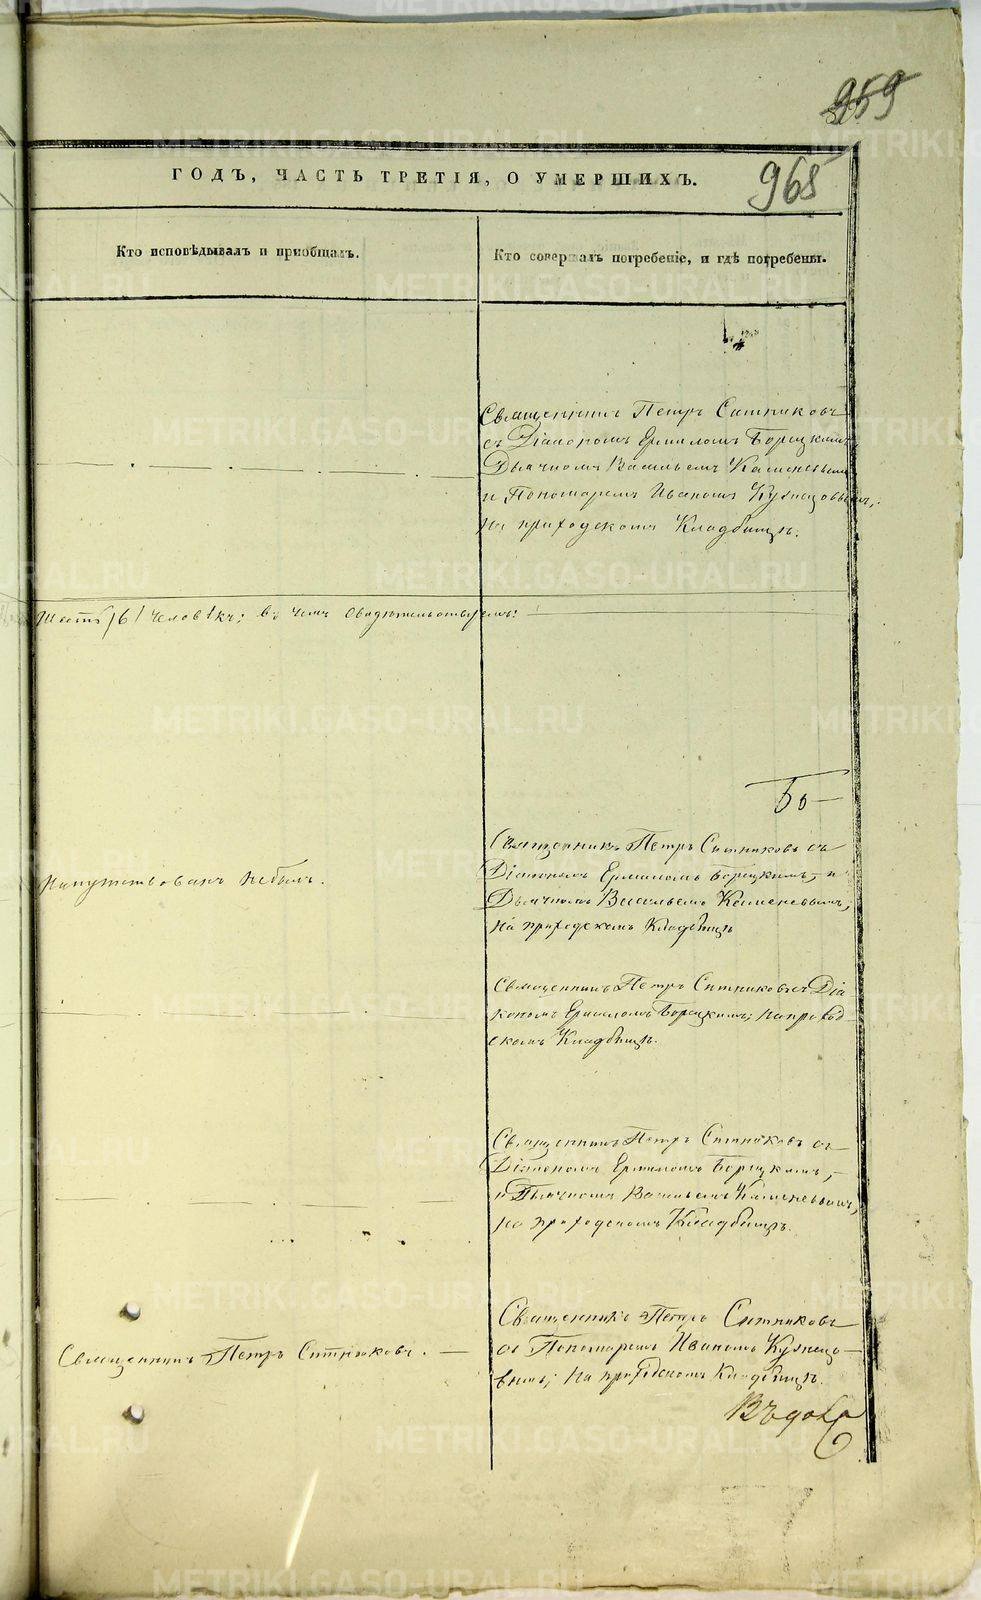 959
965
ГОДЪ, ЧАСТЬ ТРЕТІЯ, О УМЕРШИХЪ.
Кто исповѣдывалъ и пріобщалъ.
Кто совершалъ погребеніе, и гдѣ погребены.
Священникъ Петръ Ситниковъ
съ Діакономъ Ермиломъ Борецкимъ,
Дьячкомъ Васильемъ Каменевымъ
и Пономаремъ Иваномъ Кузнецовымъ,
на приходскомъ Кладбищѣ.
Шесть /6/ человѣкъ; въ чемъ свидѣтельствуемъ:
Напутствованъ небылъ.
Священникъ Петръ Ситниковъ съ
Діакономъ Ермиломъ Борецкимъ, и
Дьячкомъ Васильемъ Каменевымъ,
на приходскомъ Кладбищѣ
Священникъ Петръ Ситниковъ съ Діа-
кономъ Ермиломъ Борецкимъ; на приход-
скомъ Кладбищѣ.
Священникъ Петръ Ситниковъ съ
Діакономъ Ермиломъ Борецкимъ,
и Дьячкомъ Васильемъ Каменевымъ,
на приходскомъ Кладбищѣ.
Священникъ Петръ Ситниковъ.
Священникъ Петръ Ситниковъ
съ Пономаремъ Иваномъ Кузнецо-
вымъ; на приходскомъ Кладбищѣ.
METRIKI.GASO-URAL.RU